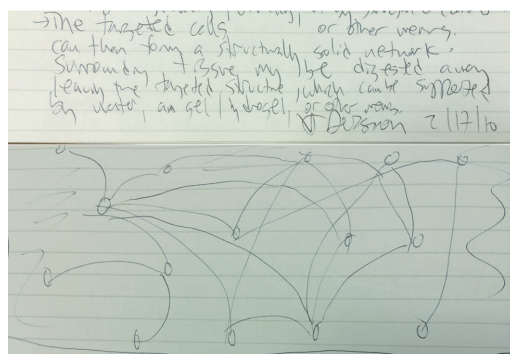 →The targeted cells or other means.
can then form a structurally solid network.
Surrounding tissue may be digested away
leaving the targeted structure, which can be supported
by water, an gel, hydrogel, or other means.
2/17/10